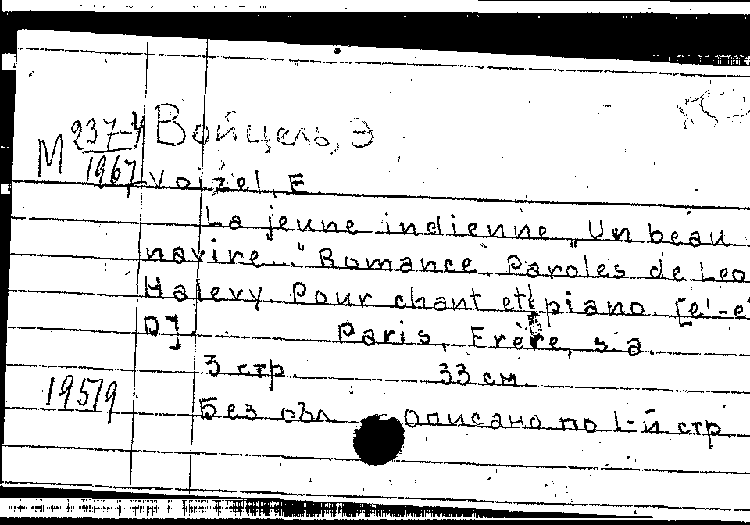 М 237-4/1967
Войцель, Э
Voizel, E.
La jeune indienne „Un beau
navire..." Romance. Paroles de Leo
Halevy. Pour chant et piano. [e'-e
D].
Paris, Frère, s.a.
3 стр. 33 см.
19519
Без обл. описано по 1-й стр